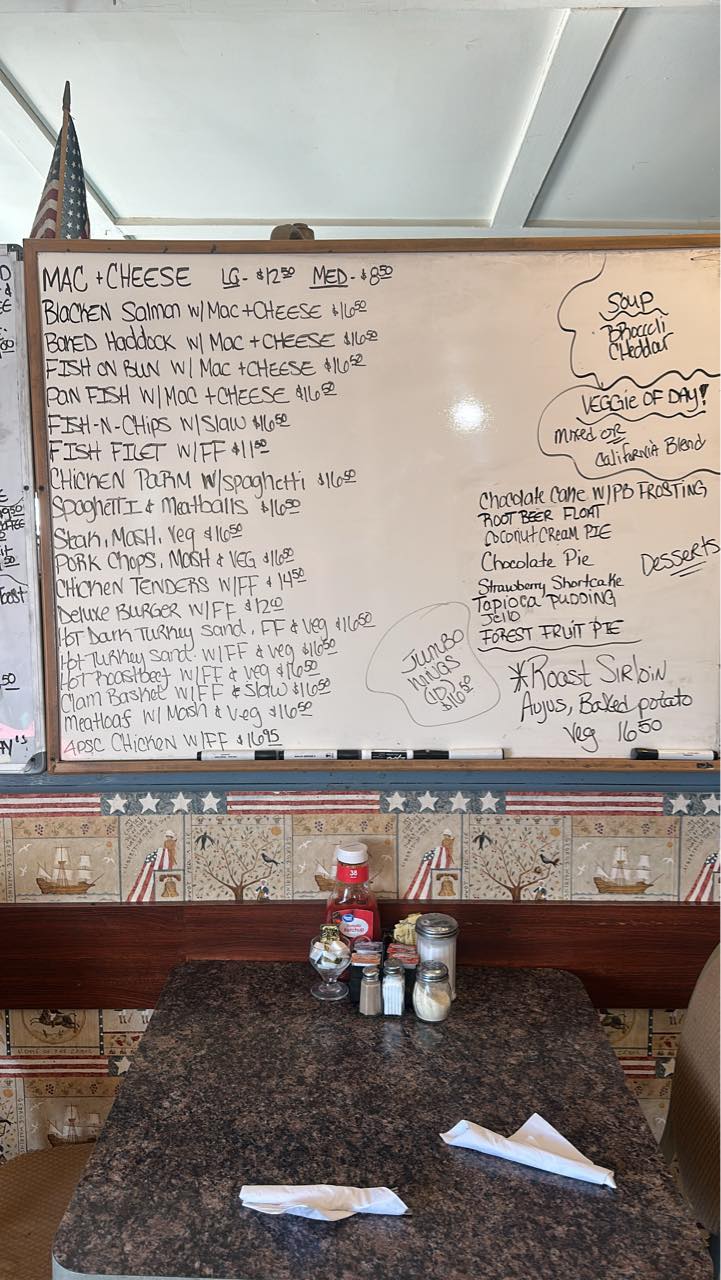 MAC + CHEESE LG - $12.50 MED - $8.50
Blacken Salmon W/ Mac + CHEESE $16.50
Baked Haddock W/ Mac + CHEESE $16.50
FISH ON BUN W/ Mac + CHEESE $16.50
PAN FISH W/ Mac + CHEESE $16.50
FISH-N-CHIPS W/ Slaw $16.50
FISH FILET W/FF $11.50
CHICKEN Parm W/ spaghetti $16.50
Spaghetti & Meatballs $16.50
Steak, Mash, Veg $16.50
Pork Chops, Mash & VEG $16.50
CHICKEN TENDERS W/FF $14.50
Deluxe BURGER W/FF $12.00
Hot Dark Turkey Sand, FF & Veg $16.50
Hot Turkey Sand W/FF & Veg $16.50
Hot Roastbeef W/FF & Veg $16.50
Clam Basket W/FF & Slaw $16.50
Meatloaf W/ Mash & Veg $16.50
4PSC CHICKEN W/FF $16.95
Soup
Broccoli
Cheddar
VEGGIE OF DAY!
Mixed OR
California Blend
Chocolate Cake W/PB FROSTING
ROOT BEER FLOAT
Coconut Cream PIE
Chocolate Pie
Strawberry Shortcake
Tapioca PUDDING
Jello
FOREST FRUIT PIE
Desserts
JUMBO
WINGS
(12)
$16.50
*Roast Sirloin
Aujus, Baked potato
Veg 16.50
38
Ketchup